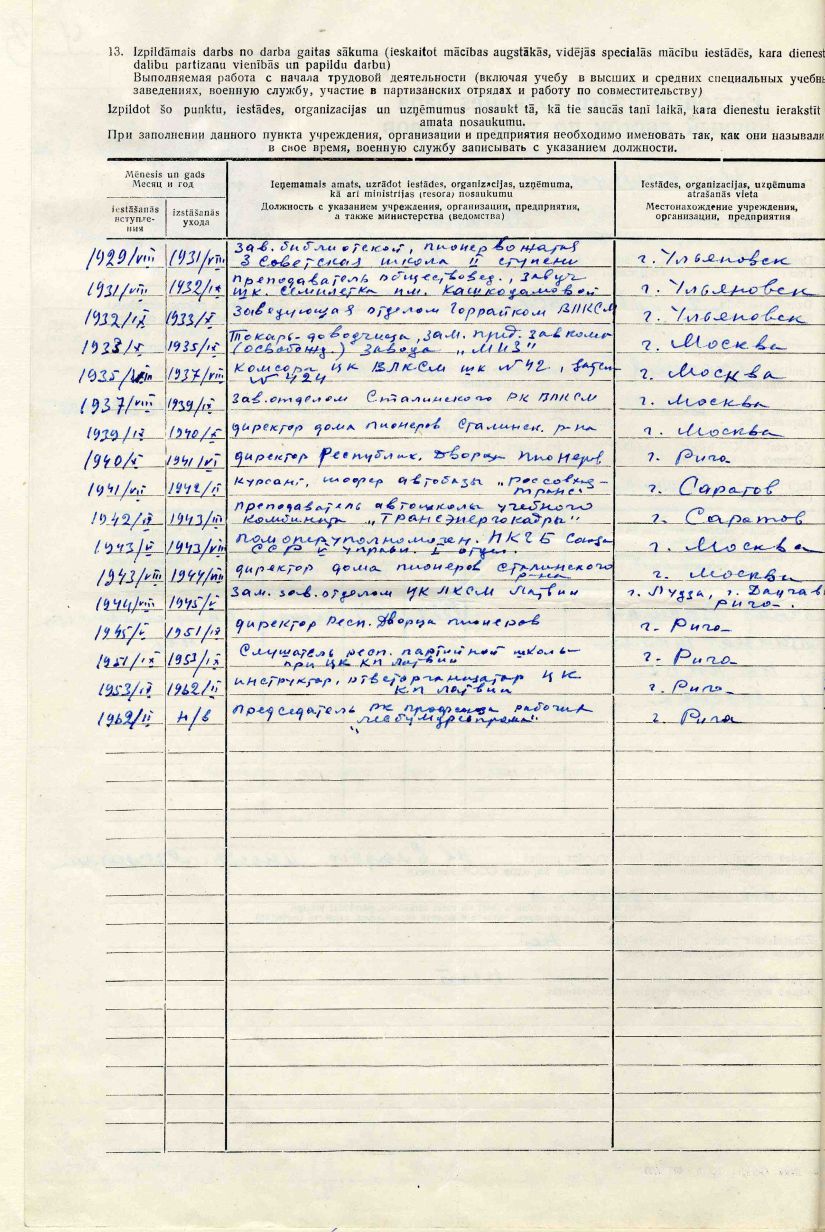 13. Izpildāmais darbs no darba gaitas sākuma (ieskaitot mācības augstākās, vidējās speciālās mācību iestādēs, kara dienest
dalību partizānu vienībās un papildu darbu)
Выполняемая работа с начала трудовой деятельности (включая учебу в высших и средних специальных учебн
заведениях, военную службу, участие в партизанских отрядах и работу по совместительству)
Izpildot šo punktu, iestādes, organizācijas un uzņēmumus nosaukt tā, kā tie saucās tanī laikā, kara dienestu ierakstīt
amata nosaukumu.
При заполнении данного пункта учреждения, организации и предприятия необходимо именовать так, как они называли
в свое время, военную службу записывать с указанием должности.
Mēnesis un gads
Месяц и год
iestāšanās
вступле-
ния
izstāšanās
ухода
Ieņemamais amats, uzrādot iestādes, organizācijas, uzņēmuma,
kā arī ministrijas (resora) nosaukumu
Должность с указанием учреждения, организации, предприятия,
а также министерства (ведомства)
Iestādes, organizācijas, uzņēmuma
atrašanās vieta
Местонахождение учреждения,
организации, предприятия
1929/VIII 1931/VIII зав. библиотекой, пионервожатая
3 Советская школа II ступени г. Ульяновск
1931/VIII 1932/IX преподаватель обществовед., завуч
шк. семилетка им. Кашкадамовой г. Ульяновск
1932/IX 1933/X заведующая отделом Горрайком ВЛКСМ г. Ульяновск
1933/X 1935/IX Токарь-доводчица, зам. пред. завкома
(освобожд.) завода „МИЗ" г. Москва
1935/VIII 1937/VIII Комсорг ЦК ВЛКСМ шк №42, затем
№ 424 г. Москва
1937/VIII 1939/IX зав. отделом Сталинского РК ВЛКСМ г. Москва
1939/IX 1940/X директор дома пионеров Сталинск. р-на г. Москва
1940/X 1941/VI директор Республик. Дворца пионеров г. Рига
1941/VII 1942/II курсант, шофер автобазы г. Саратов
1942/II 1943/III преподаватель автошколы учебного
комбината „Трансэнергокадры" г. Саратов
1943/V 1943/VIII помоперуполномочен. НКГБ Союза
ССР V управл. I отдел. г. Москва
1943/VIII 1944/VIII директор дома пионеров Сталинского
р-на г. Москва
1944/VIII 1945/V Зам. зав. отделом ЦК ЛКСМ Латвии г. Лудза, г. Даугав
Рига.
1945/V 1951/IX директор Респ. Дворца пионеров г. Рига
1951/IX 1953/IX Слушатель респ. партийной школы
при ЦК КП Латвии г. Рига
1953/IX 1962/II инструктор, отв. ЦК
КП Латвии г. Рига
1962/II н/в Председатель РК профсоюза рабочих
„Лесбумдревпрома" г. Рига